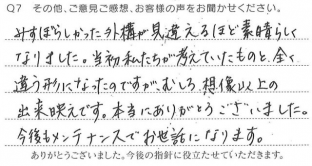 Q7 その他、ご意見ご感想、お客様の声をお聞かせください。
みすぼらしかった外構が見違えるほど素晴らしく
なりました。当初私たちが考えていたものと、全く
違う形になったのですが、むしろ、想像以上の
出来映えです。本当にありがとうございました。
今後もメンテナンスでお世話になります。
ありがとうございました。今後の指針に役立たせていただきます。